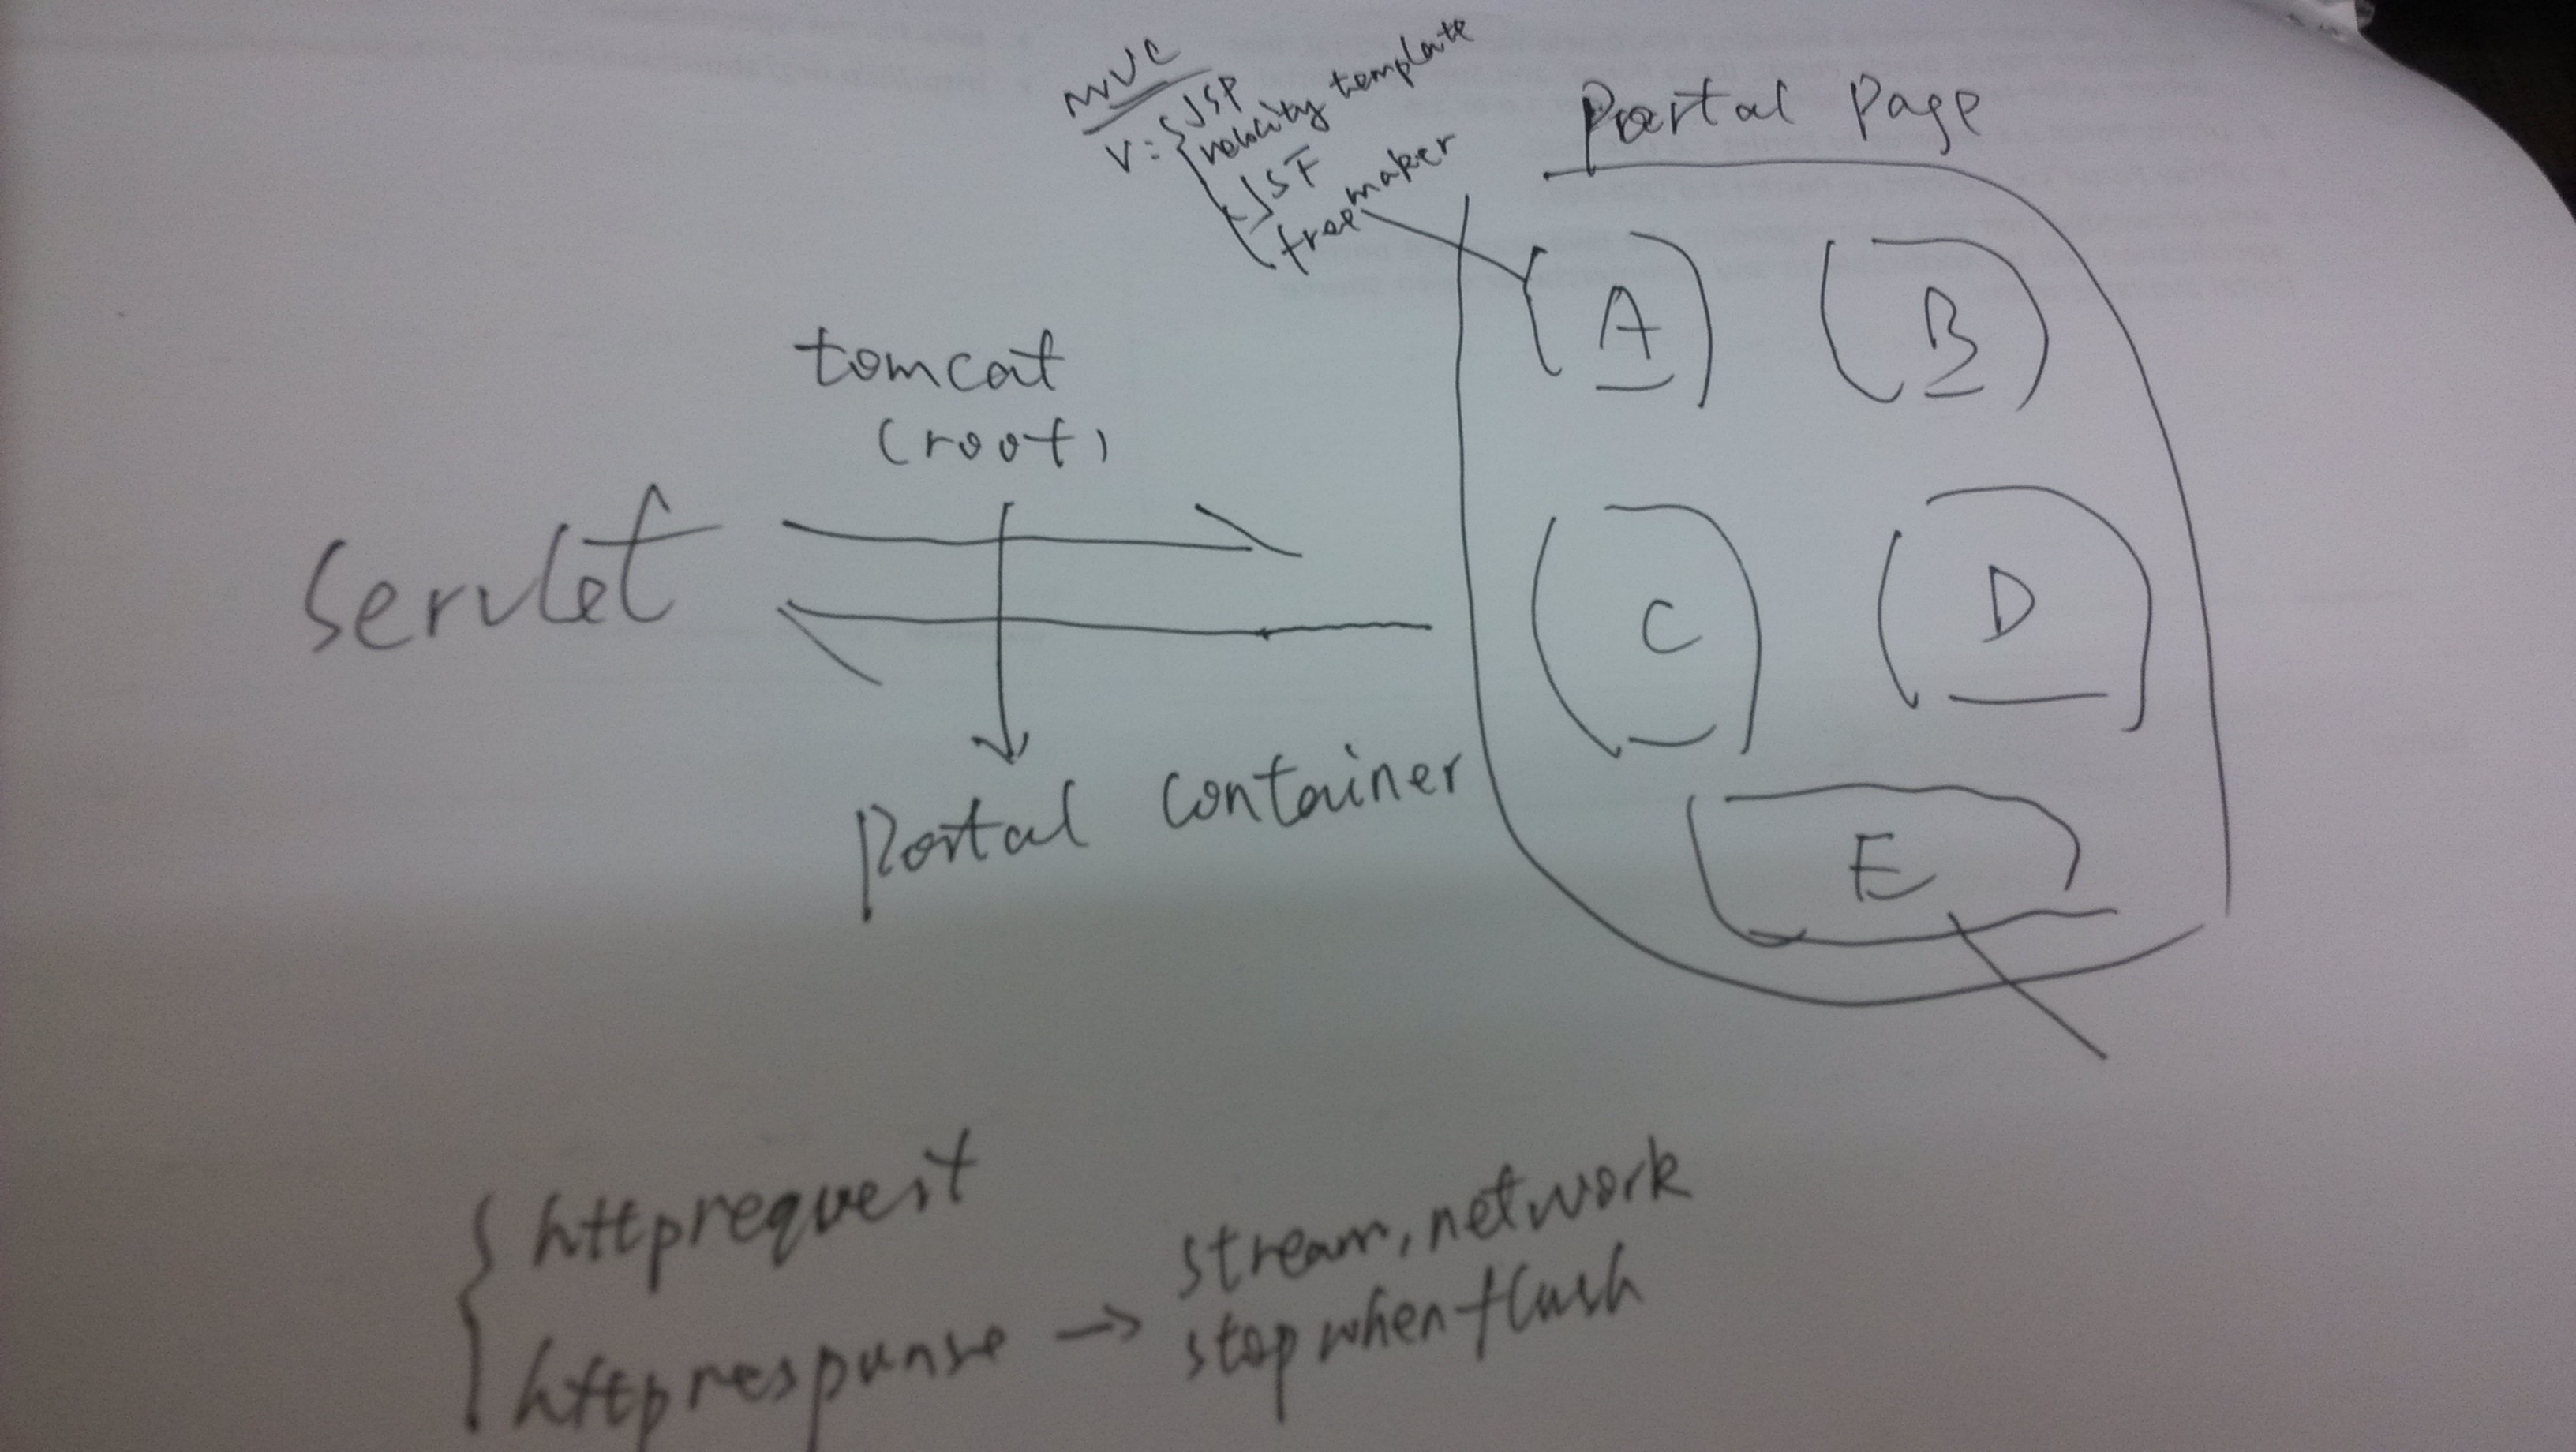 MVC
V: { JSP
velocity template
JSF
freemaker
Portal Page
A
B
C
D
E
tomcat
(root)
Servlet
Portal Container
{ httprequest
httpresponse → stream, network
stop when flush